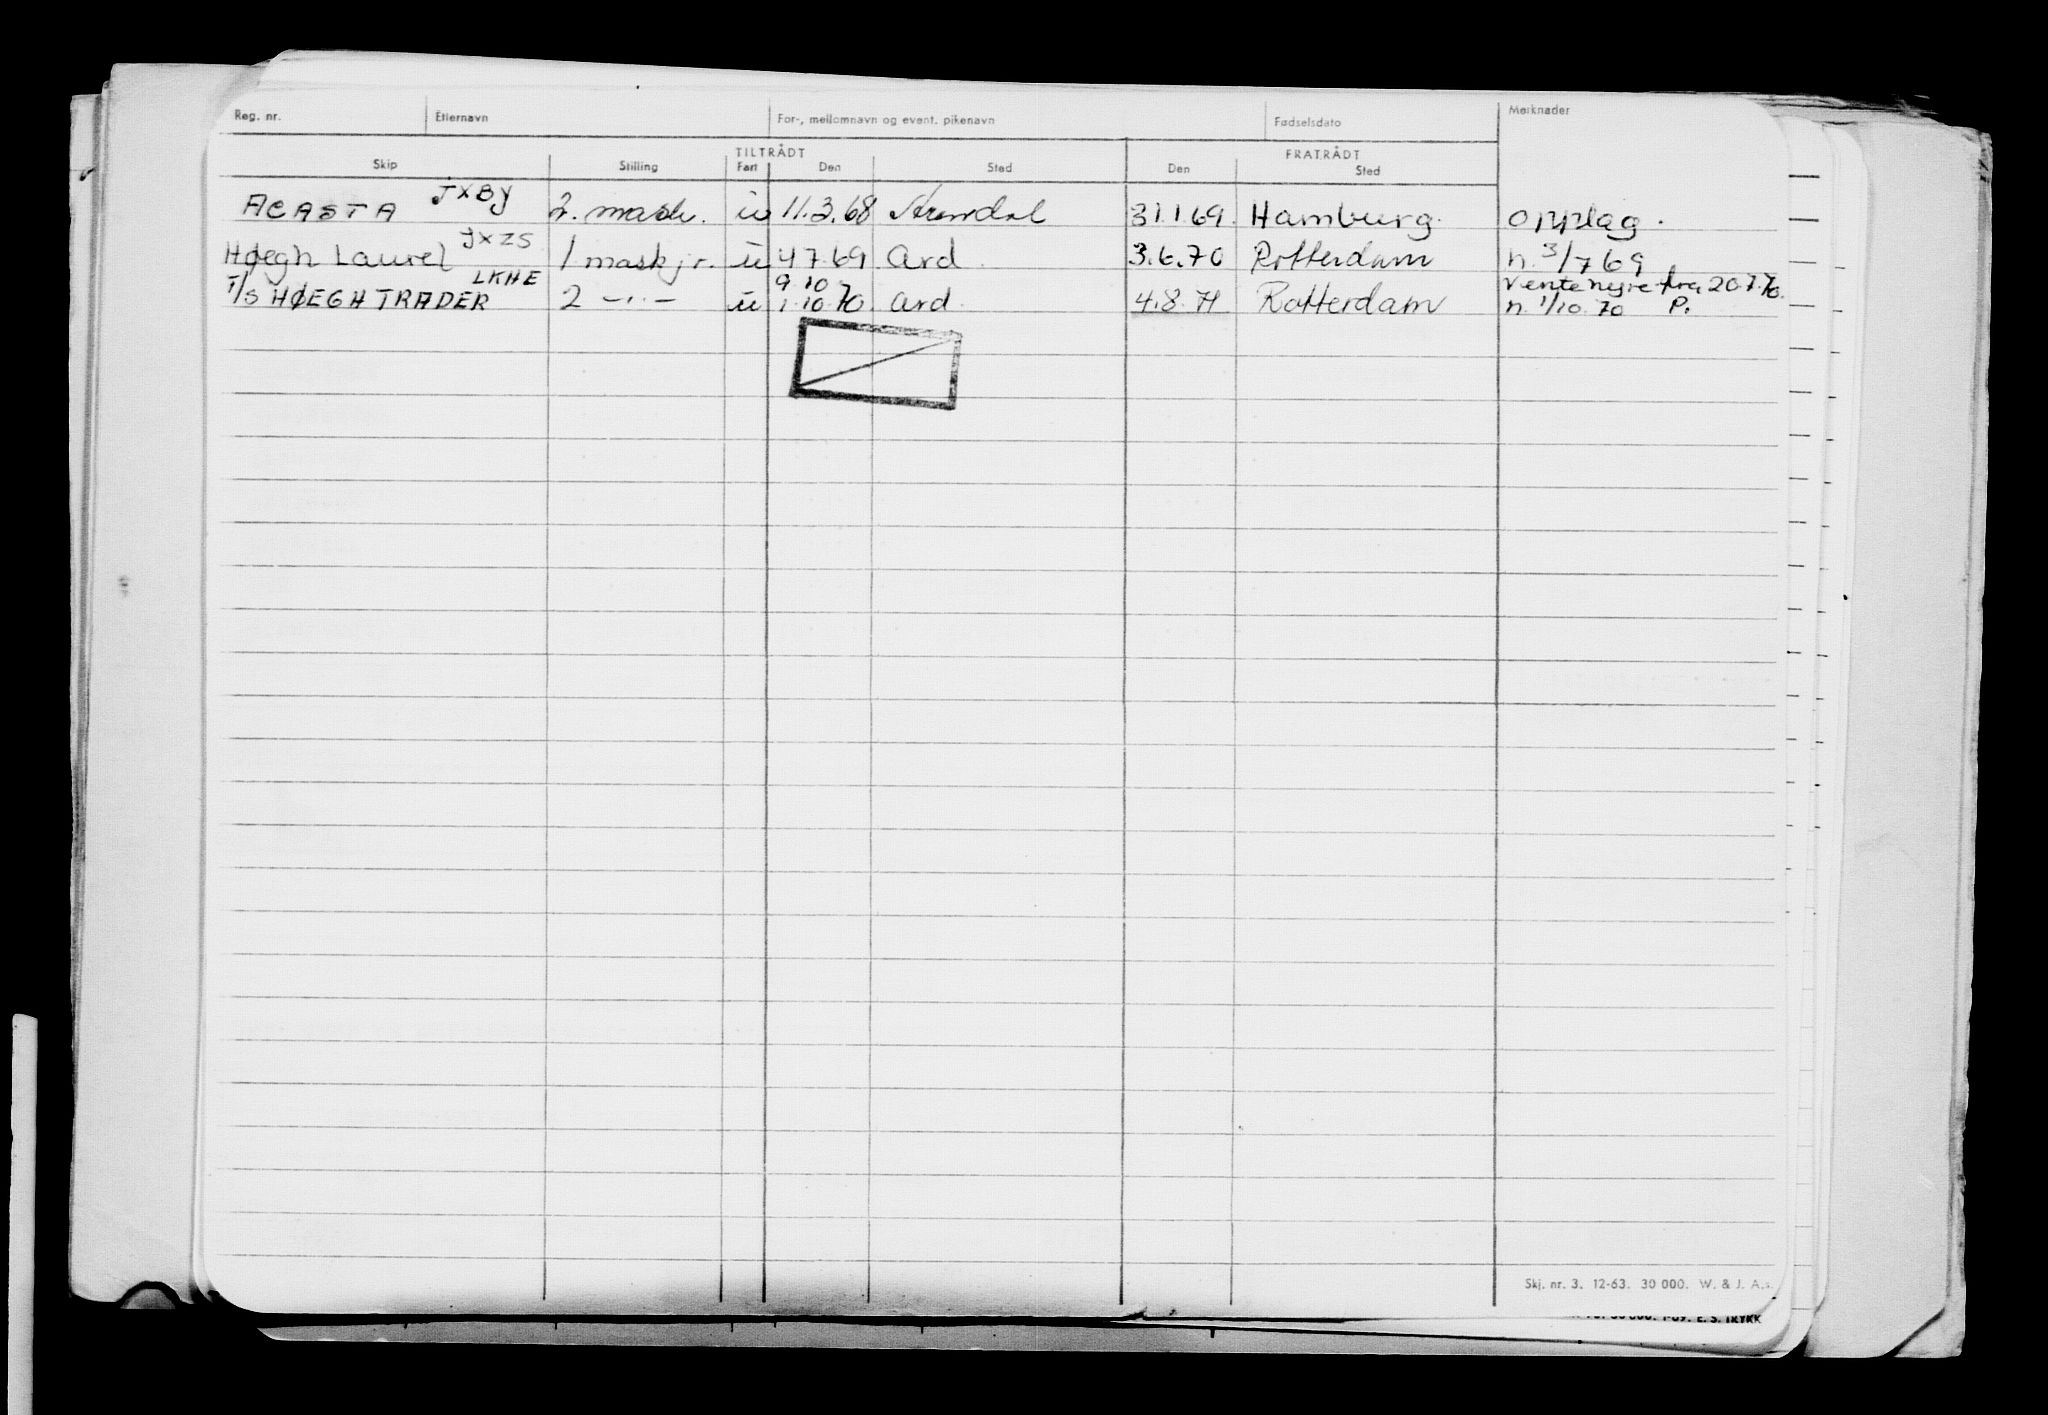 Reg. nr. Etternavn For-, mellomnavn og event. pikenavn Fødselsdato Merknader
TILTRÅDT FRATRÅDT
Skip Stilling Fart Den Sted Den Sted
ACASTA JXBY 2. mask. u 11.3.68 Arendal 31.1.69. Hamburg. opplag.
Høegh Laurel JXZS 1 maskjr. u 4 7.69 Ard. 3.6.70 Rotterdam n. 3/7 69
LKHE 9.10 Ventehyre fra 20.7.70.
T/S HØEGH TRADER 2 -"- u 1.10.70. Ard. 4.8.71 Rotterdam n. 1/10.70 P.
Skj. nr. 3. 12-63. 30 000. W. & J. A.s.
E. S. TRYKK